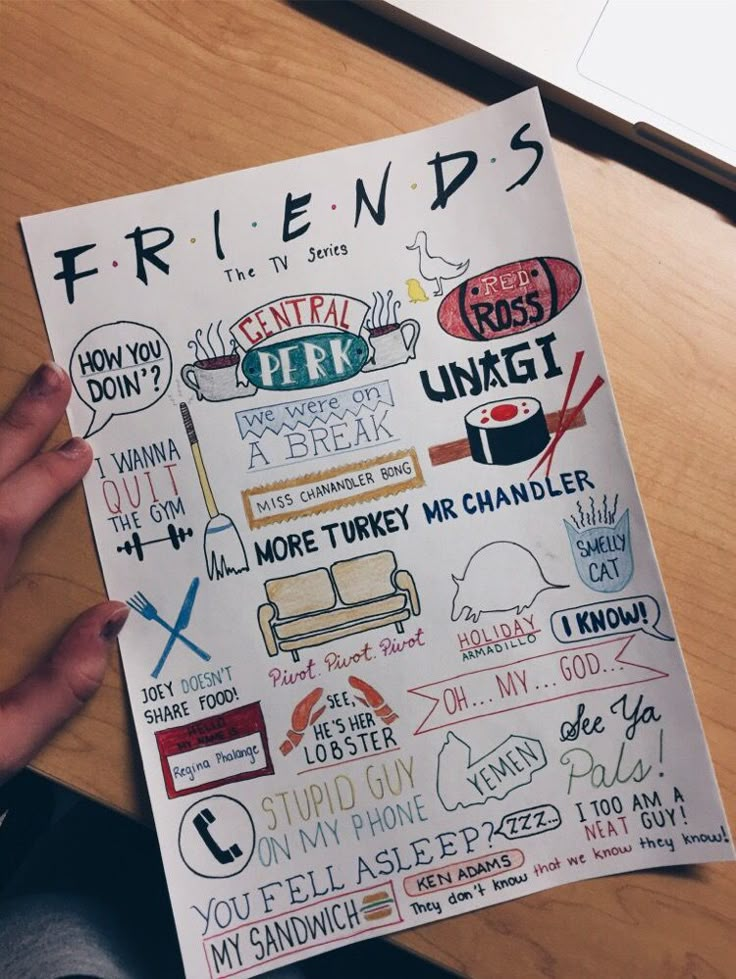 F.R.I.E.N.D.S
The TV Series
HOW YOU
DOIN'?
CENTRAL
PERK
RED
ROSS
WE WERE ON
A BREAK
UNAGI
I WANNA
QUIT
THE GYM
MISS CHANANDLER BONG
MORE TURKEY MR CHANDLER
SMELLY
CAT
Pivot. Pivot. Pivot
HOLIDAY
ARMADILLO
I KNOW!
JOEY DOESN'T
SHARE FOOD!
OH... MY... GOD...
HELLO
MY NAME IS
Regina Phalange
SEE,
HE'S HER
LOBSTER
YEMEN
See Ya
Pals!
STUPID GUY
ON MY PHONE
YOU FELL ASLEEP?
ZZZ...
I TOO AM A
NEAT GUY!
MY SANDWICH
KEN ADAMS
They don't know that we know they know!